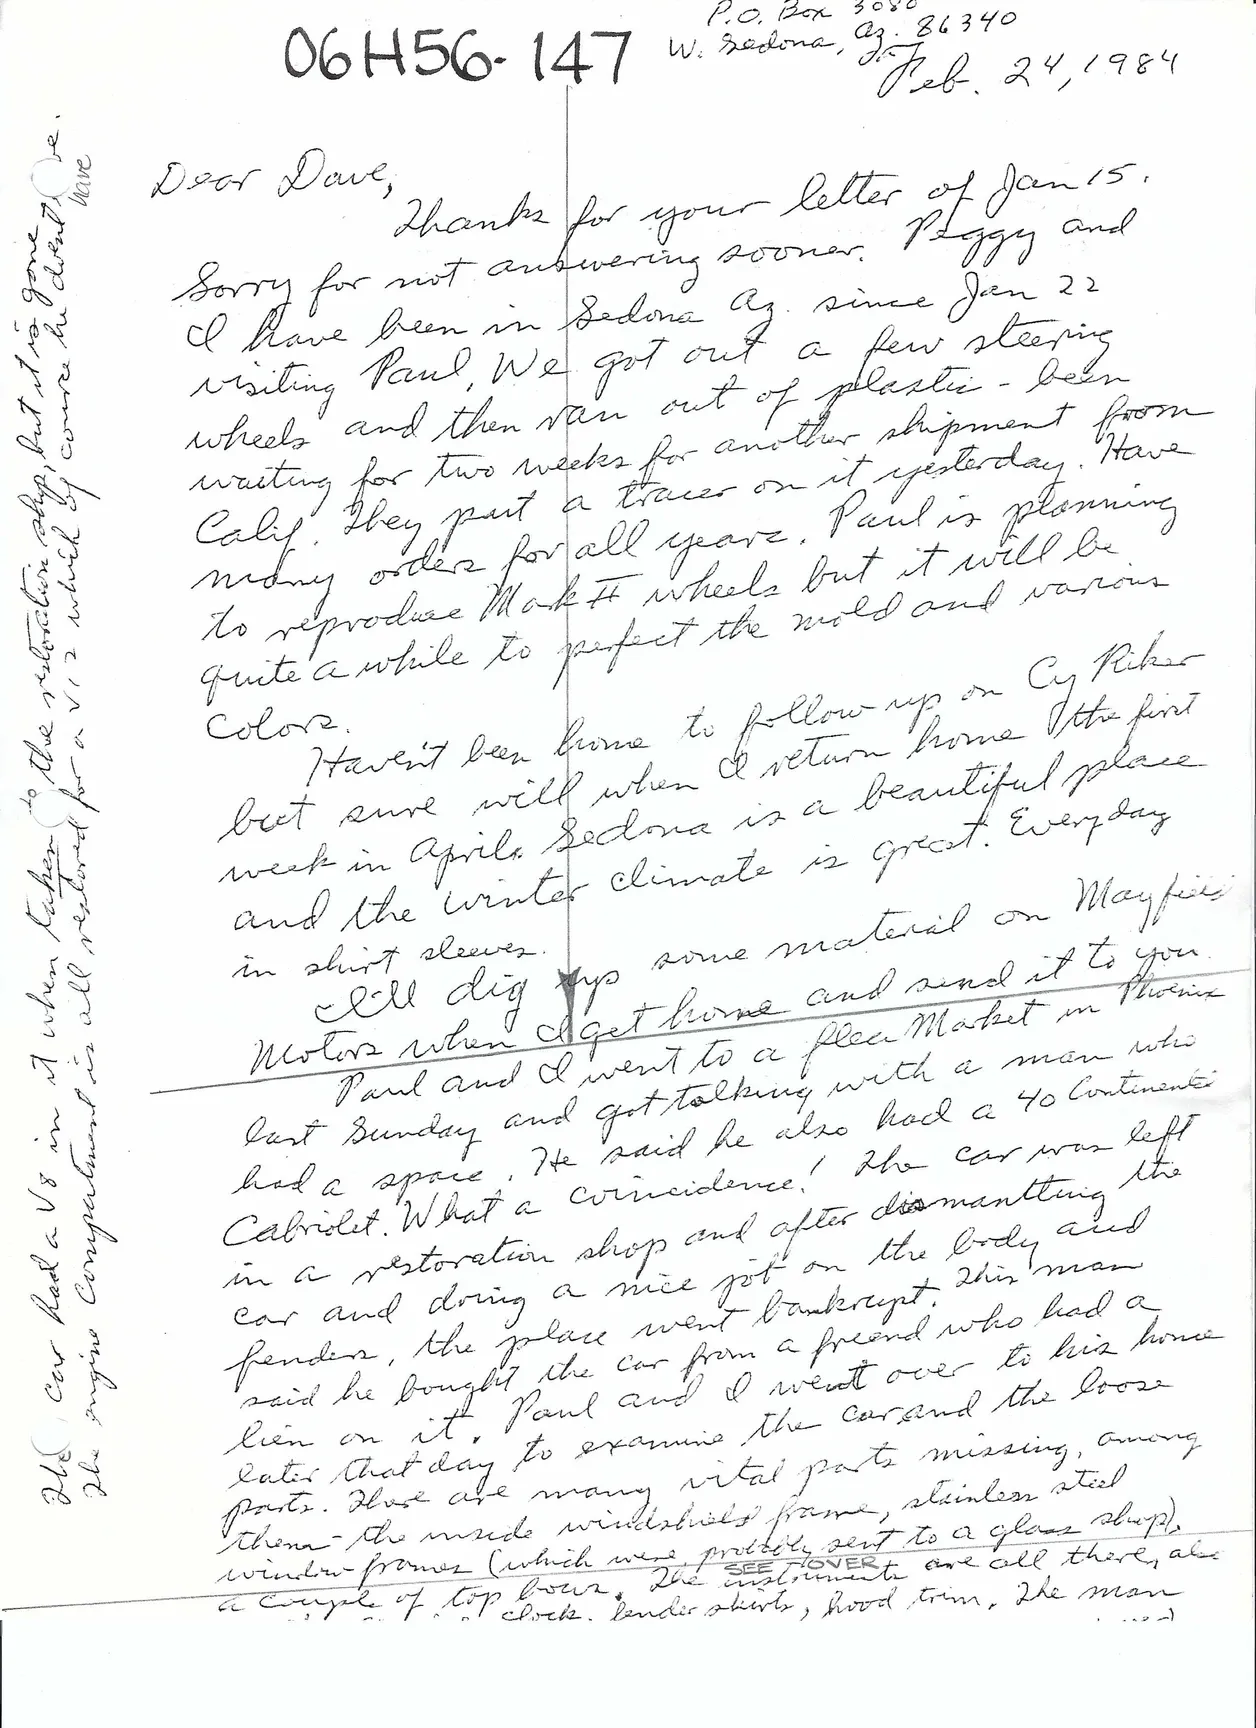 06H56-147
P.O. Box 3080
W. Sedona, Az. 86340
Feb. 24, 1984
Dear Dave,
Thanks for your letter of Jan 15.
Sorry for not answering sooner. Peggy and
I have been in Sedona Az. since Jan 22
visiting Paul. We got out a few steering
wheels and then ran out of plastic - been
waiting for two weeks for another shipment from
Calif. They put a tracer on it yesterday. Have
many orders for all years. Paul is planning
to reproduce Mark II wheels but it will be
quite a while to perfect the mold and various
colors.
Haven't been home to follow up on Cy Riker
but sure will when I return home the first
week in April. Sedona is a beautiful place
and the winter climate is great. Everyday
in shirt sleeves.
I'll dig up some material on Mayfield
Motors when I get home and send it to you.
Paul and I went to a flea Market in Phoenix
last Sunday and got talking with a man who
had a space. He said he also had a 40 Continental
Cabriolet. What a coincidence! The car was left
in a restoration shop and after dismantling the
car and doing a nice job on the body and
fenders, the place went bankrupt. This man
said he bought the car from a friend who had a
lien on it. Paul and I went over to his home
later that day to examine the car and the loose
parts. There are many vital parts missing, among
them - the inside windshield frame, stainless steel
window frames (which were probably sent to a glass shop),
SEE OVER
a couple of top bows. The instruments are all there, also
clock, fender skirts, hood trim. The man
The car had a V8 in it when taken to the restoration shop, but it is gone
The engine compartment is all restored for a V12 which of course he doesn't have